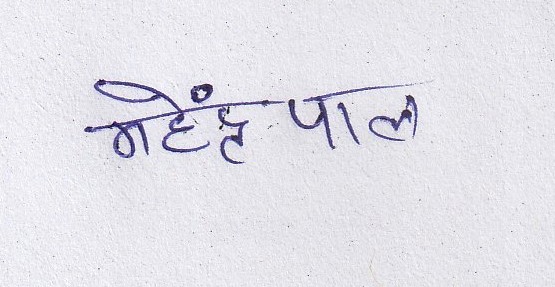 महेंद्र पाल